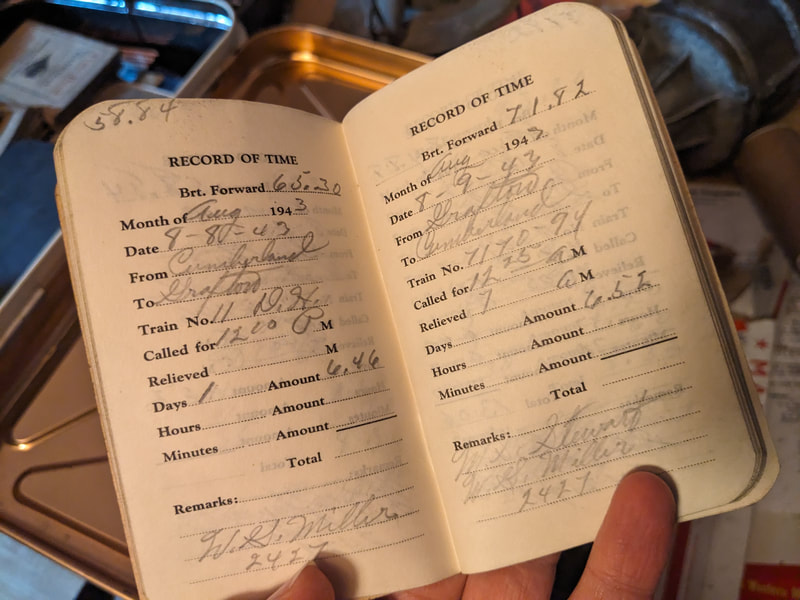 58.84
RECORD OF TIME
Brt. Forward 65.30
Month of Aug 1943
Date 8-8-43
From Cumberland
To Grafton
Train No. 11 D.H.
Called for 1210 P M
Relieved M
Days 1 Amount 6.46
Hours Amount
Minutes Amount
Total
Remarks:
W.G. Miller
2427
RECORD OF TIME
Brt. Forward 71.82
Month of Aug 1943
Date 8-9-43
From Grafton
To Cumberland
Train No. 7170-94
Called for 12 25 A M
Relieved 7 A M
Days Amount 6.52
Hours Amount
Minutes Amount
Total
Remarks:
Stewart
Miller
2427